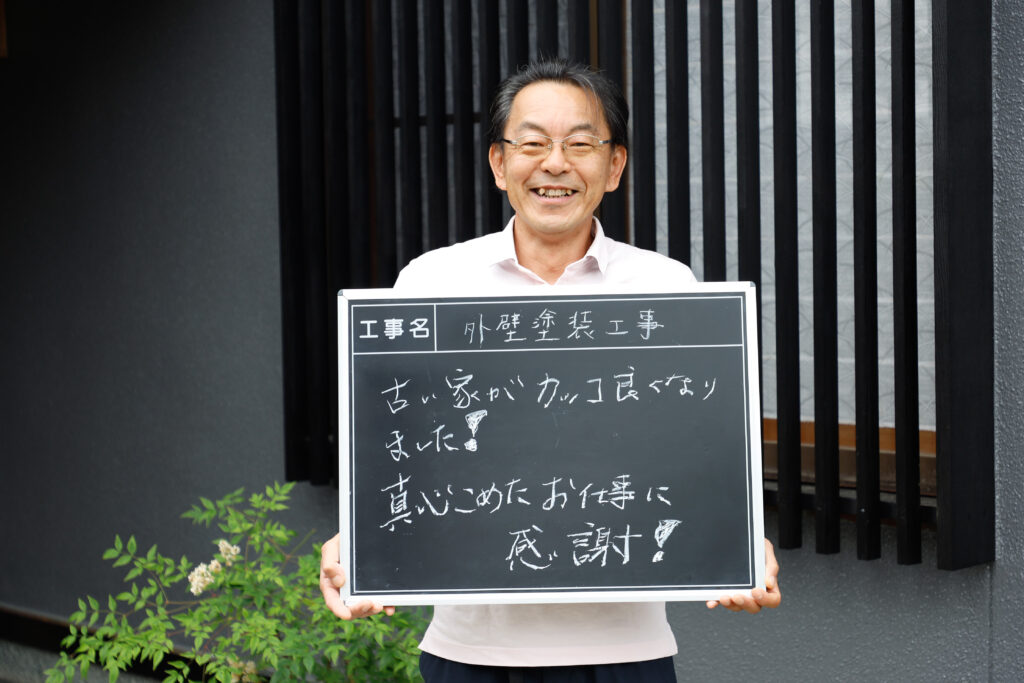 工事名 外壁塗装工事
古い家がカッコ良くなり
ました!
真心こめたお仕事に
感謝!